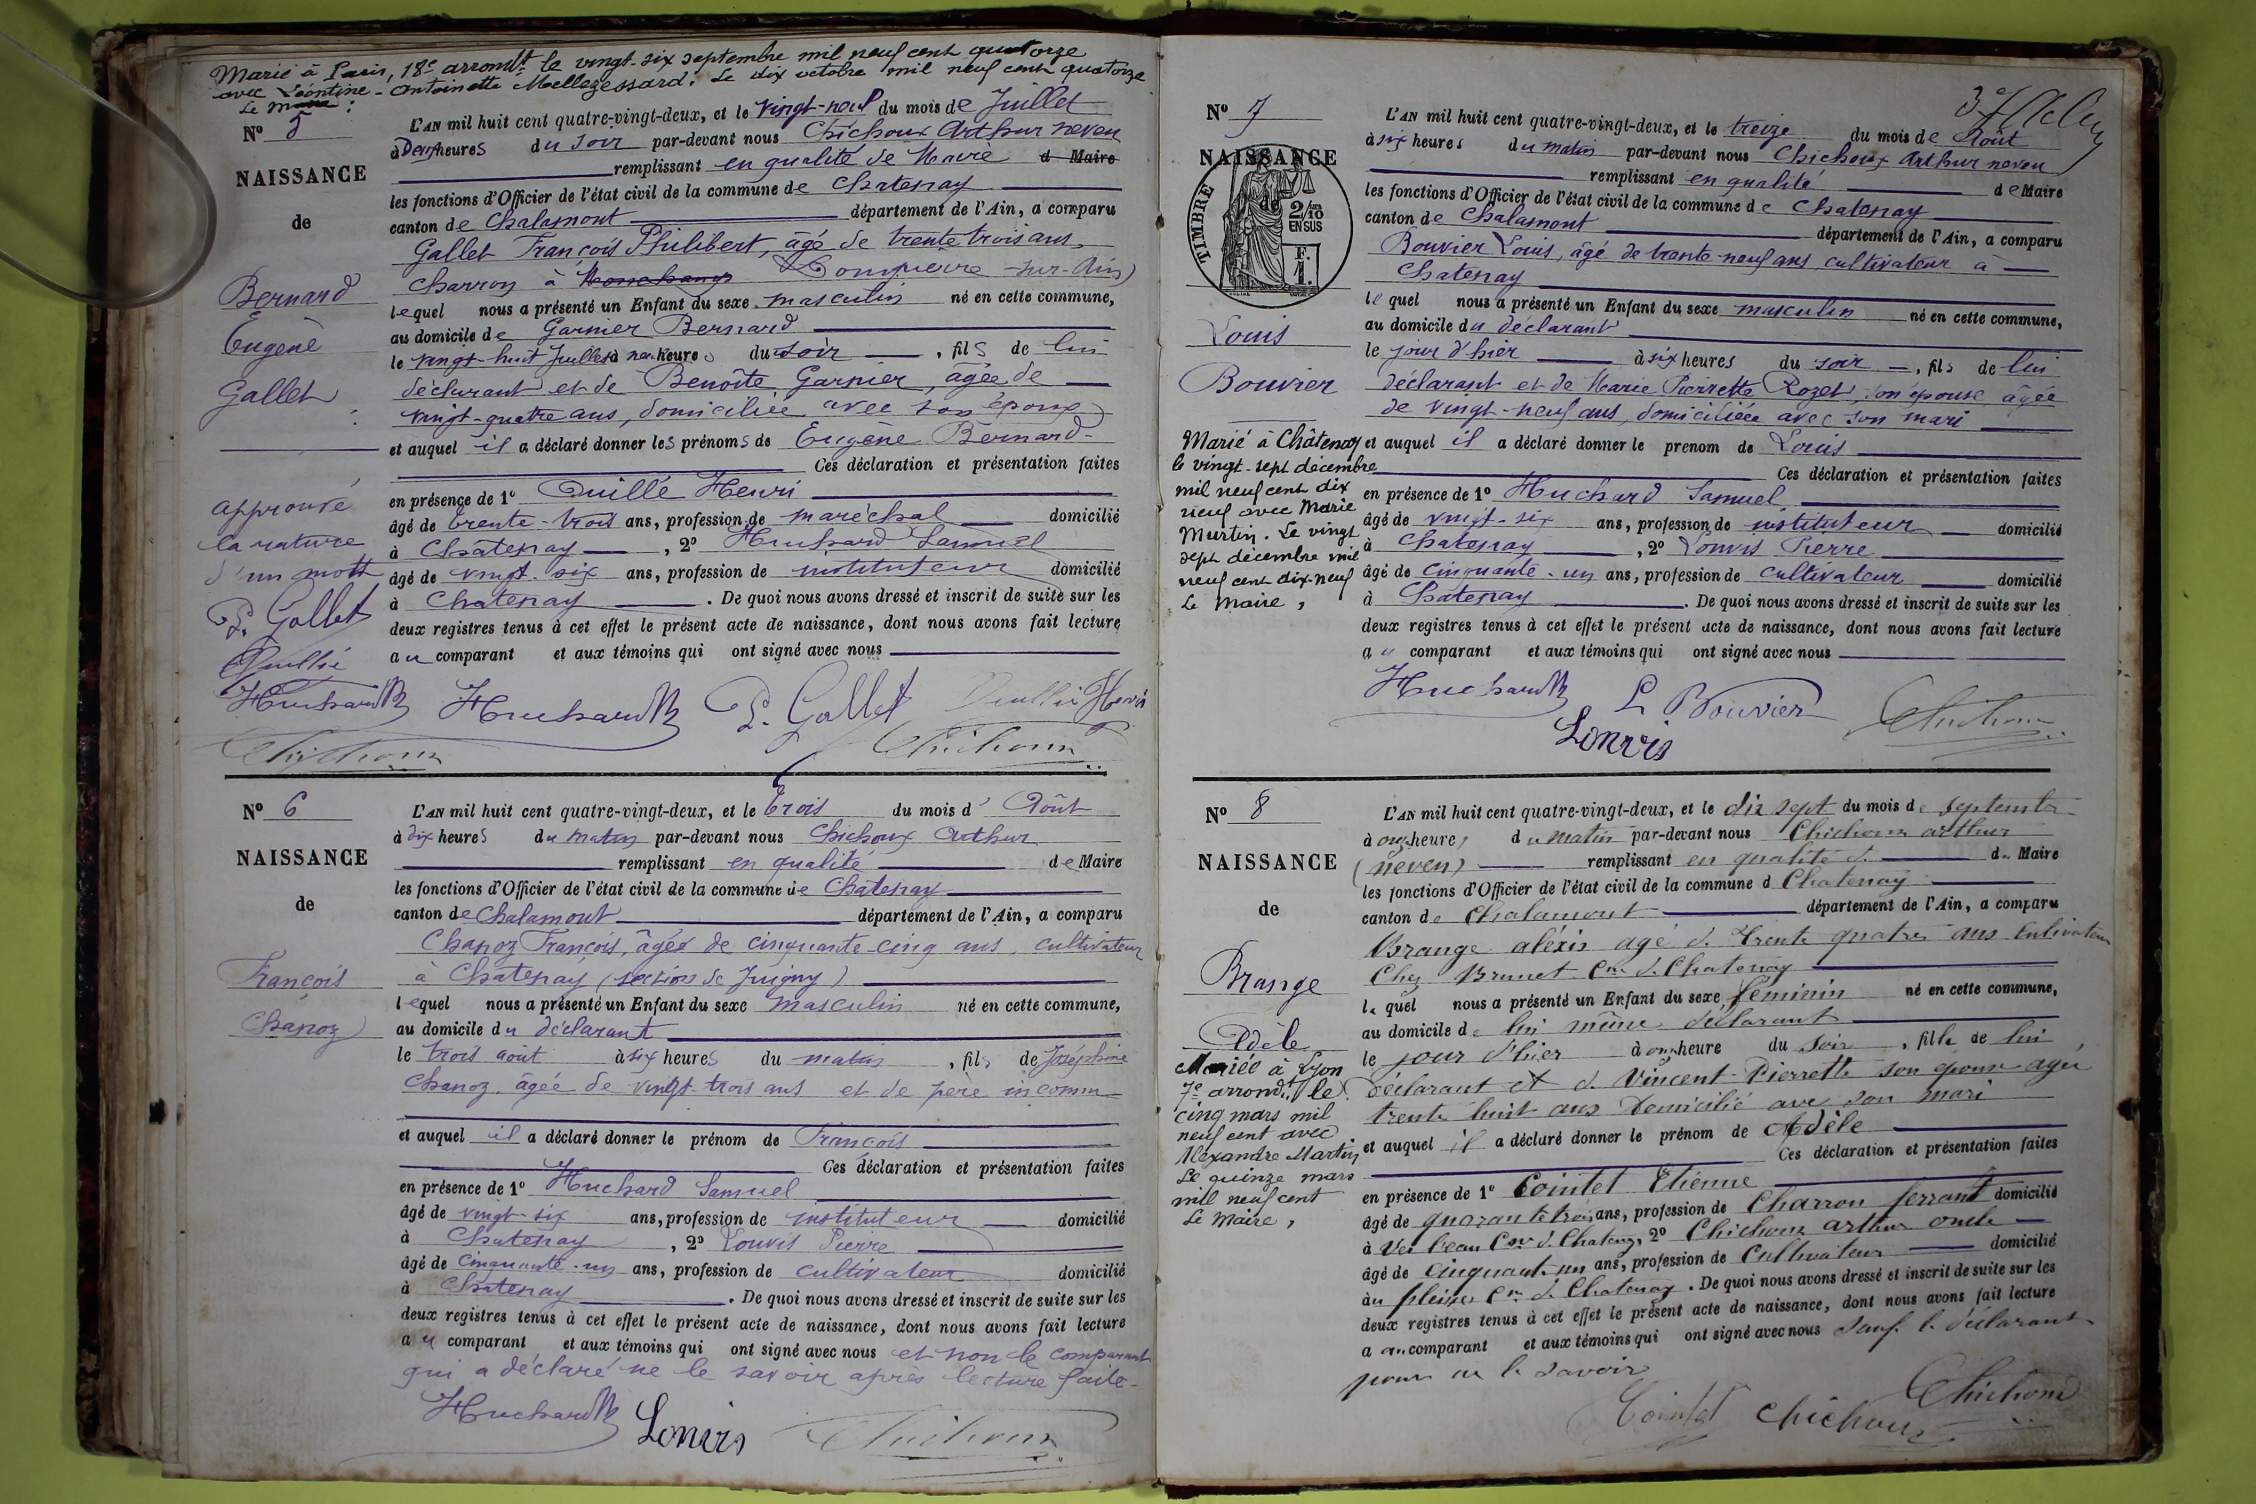 Marié à Paris, 18e arrondt le vingt-six septembre mil neuf cent quatorze
avec Léontine-Antoinette Mellezessard. Le dix octobre mil neuf cent quatorze
Le maire :
No 5
NAISSANCE
de
Bernard
Eugène
Gallet
approuvé
la rature
d'un mott
P. Gallet
Quillié
Huchard
Chichoux
L'AN mil huit cent quatre-vingt-deux, et le vingt-neuf du mois de Juillet
à Deux heures du soir par-devant nous Chichoux Arthur neveu
remplissant en qualité de Mavie d Maire
les fonctions d'Officier de l'état civil de la commune de Chatenay
canton de Chalamont département de l'Ain, a comparu
Gallet François Philibert, âgé de trente trois ans
charron à Dompierre-sur-Ain
lequel nous a présenté un Enfant du sexe masculin né en cette commune,
au domicile de Garnier Bernard
le vingt-huit Juillet à heures du soir, fils de lui
déclarant et de Benoîte Garnier, âgée de
vingt-quatre ans, domiciliée avec son époux
et auquel il a déclaré donner les prénoms de Eugène Bernard
Ces déclaration et présentation faites
en présence de 1o Quillé Henri
âgé de trente-trois ans, profession de maréchal domicilié
à Châtenay, 2o Huchard Samuel
âgé de vingt-six ans, profession de instituteur domicilié
à Chatenay. De quoi nous avons dressé et inscrit de suite sur les
deux registres tenus à cet effet le présent acte de naissance, dont nous avons fait lecture
au comparant et aux témoins qui ont signé avec nous
Huchard P. Gallet Quillié Henri
Chichoux
No 6
NAISSANCE
de
François
Chanoz
L'AN mil huit cent quatre-vingt-deux, et le trois du mois d' Août
à dix heures du matin par-devant nous Chichoux Arthur
remplissant en qualité de Maire
les fonctions d'Officier de l'état civil de la commune de Châtenay
canton de Chalamont département de l'Ain, a comparu
Chanoz François, âgé de cinquante-cinq ans, cultivateur
à Châtenay (section de Juigny)
lequel nous a présenté un Enfant du sexe masculin né en cette commune,
au domicile du déclarant
le trois août à six heures du matin, fils de Joséphine
Chanoz, âgée de vingt-trois ans et de père inconnu
et auquel il a déclaré donner le prénom de François
Ces déclaration et présentation faites
en présence de 1o Huchard Samuel
âgé de vingt-six ans, profession de instituteur domicilié
à Chatenay, 2o Louvis Pierre
âgé de cinquante-un ans, profession de cultivateur domicilié
à Châtenay. De quoi nous avons dressé et inscrit de suite sur les
deux registres tenus à cet effet le présent acte de naissance, dont nous avons fait lecture
au comparant et aux témoins qui ont signé avec nous et non le comparant
qui a déclaré ne le savoir après lecture faite
Huchard Louvis Chichoux
No 7
NAISSANCE
de
TIMBRE
2/10 EN SUS
F. 1.
Louis
Bouvier
Marié à Châtenay
le vingt-sept décembre
mil neuf cent dix
neuf avec Marie
Murtin. Le vingt
sept décembre mil
neuf cent dix-neuf
Le Maire,
L'AN mil huit cent quatre-vingt-deux, et le treize du mois de Août
à six heures du matin par-devant nous Chichoux Arthur neveu
remplissant en qualité de Maire
les fonctions d'Officier de l'état civil de la commune de Chatenay
canton de Chalamont département de l'Ain, a comparu
Bouvier Louis, âgé de trente-neuf ans, cultivateur à
Chatenay
lequel nous a présenté un Enfant du sexe masculin né en cette commune,
au domicile du déclarant
le jour d'hier à six heures du soir, fils de lui
déclarant et de Marie Pierrette Rozet, son épouse âgée
de vingt-neuf ans, domiciliée avec son mari
et auquel il a déclaré donner le prenom de Louis
Ces déclaration et présentation faites
en présence de 1o Huchard Samuel
âgé de vingt-six ans, profession de instituteur domicilié
à Chatenay, 2o Louvis Pierre
âgé de cinquante-un ans, profession de cultivateur domicilié
à Chatenay. De quoi nous avons dressé et inscrit de suite sur les
deux registres tenus à cet effet le présent acte de naissance, dont nous avons fait lecture
au comparant et aux témoins qui ont signé avec nous
Huchard L Bouvier Chichoux
Louvis
No 8
NAISSANCE
de
Brange
Adèle
Mariée à Lyon
7e arrondt. le
cinq mars mil
neuf cent avec
Alexandre Martin
Le quinze mars
mil neuf cent
Le Maire,
L'AN mil huit cent quatre-vingt-deux, et le dix sept du mois de septembre
à onze heures du matin par-devant nous Chichoux arthur
(neveu) remplissant en qualité d. du Maire
les fonctions d'Officier de l'état civil de la commune d Chatenay
canton de Chalamont département de l'Ain, a comparu
Brange aléxis agé d. trente quatre ans cultivateur
Chez Brunet Cne d. Chatenay
le quel nous a présenté un Enfant du sexe féminin né en cette commune,
au domicile de lui même déclarant
le jour d'hier à onze heure du soir, fille de lui
déclarant et d. Vincent Pierrette son épouse agée
trente huit ans Domicilié avec son mari
et auquel il a déclaré donner le prénom de Adèle
Ces déclaration et présentation faites
en présence de 1o Cointet Etienne
âgé de quarante trois ans, profession de Charron ferrant domicilié
à Cne d. Chatenay, 2o Chichoux arthur oncle
âgé de cinquante un ans, profession de Cultivateur domicilié
au Cne d. Chatenay. De quoi nous avons dressé et inscrit de suite sur les
deux registres tenus à cet effet le présent acte de naissance, dont nous avons fait lecture
a au comparant et aux témoins qui ont signé avec nous sauf le déclarant
pour ne le savoir
Cointet Chichoux Chichoux